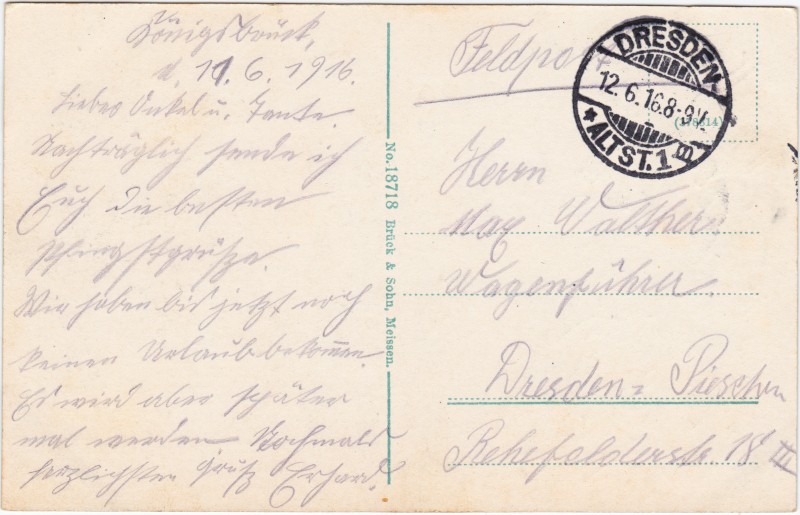 Königsbrück,
d. 11.6.1916.
Liebes Onkel u. Tante.
Nachträglich sende ich
Euch die besten
Pfingstgrüße.
Wir haben bis jetzt noch
keinen Urlaub bekommen.
Es wird aber später
mal werden Nochmals
herzlichsten Gruß Erhard.
No. 18718 Brück & Sohn, Meissen.
Feldpost
DRESDEN
12.6.16.8-9V.
* ALTST. 1 B
Herrn
Max Walther
Wagenführer.
Dresden=Pieschen
Rehefelderstr. 18 III